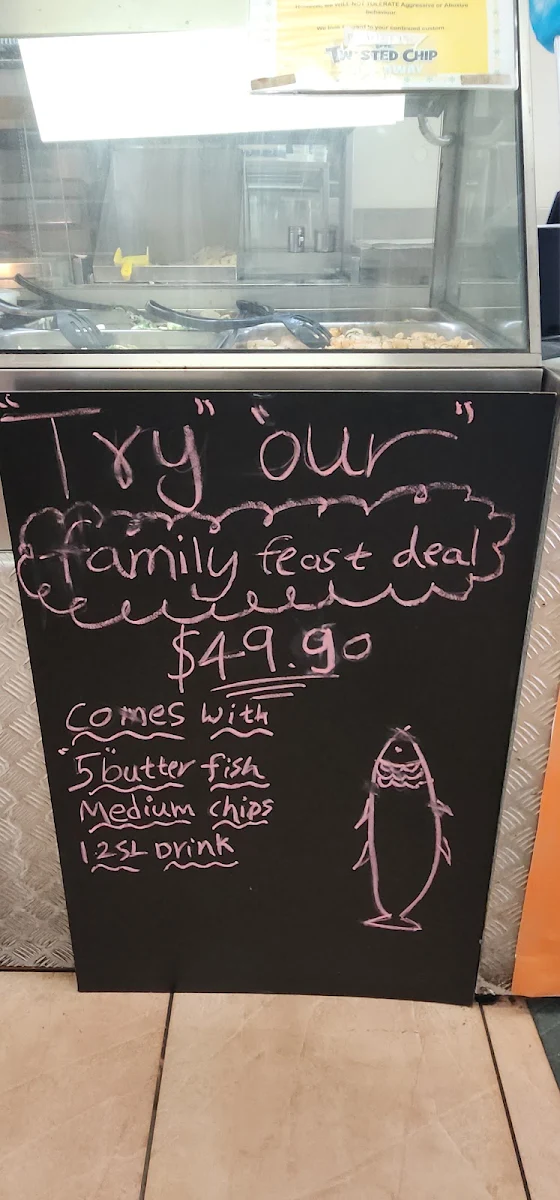 WILL NOT TOLERATE Aggressive or Abusive
behaviour
to your continued custom
TWISTED CHIP
"Try" "our"
family feast deal
$49.90
comes with
"5"butter fish
Medium chips
1.25L Drink